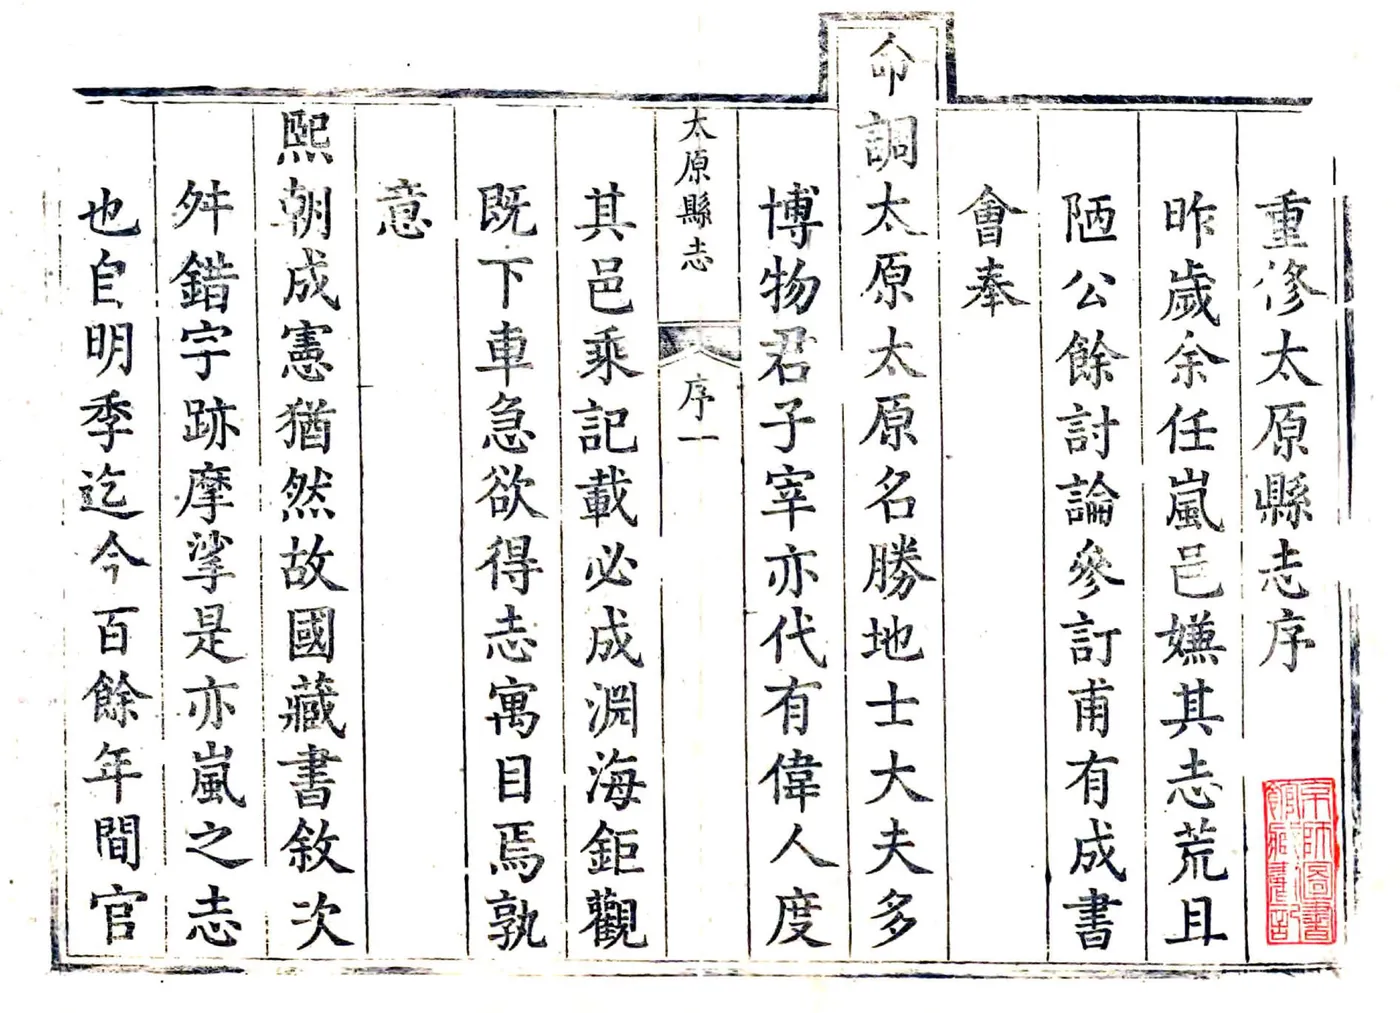 重修太原縣志序
昨歲余任嵐邑嫌其志荒且
陋公餘討論參訂甫有成書
會奉
命調太原太原名勝地士大夫多
博物君子宰亦代有偉人度
太原縣志
序一
其邑乘記載必成淵海鉅觀
既下車急欲得志寓目焉孰
意
熙朝成憲猶然故國藏書敘次
舛錯字跡摩挲是亦嵐之志
也自明季迄今百餘年間官
京師圖書
館藏書記